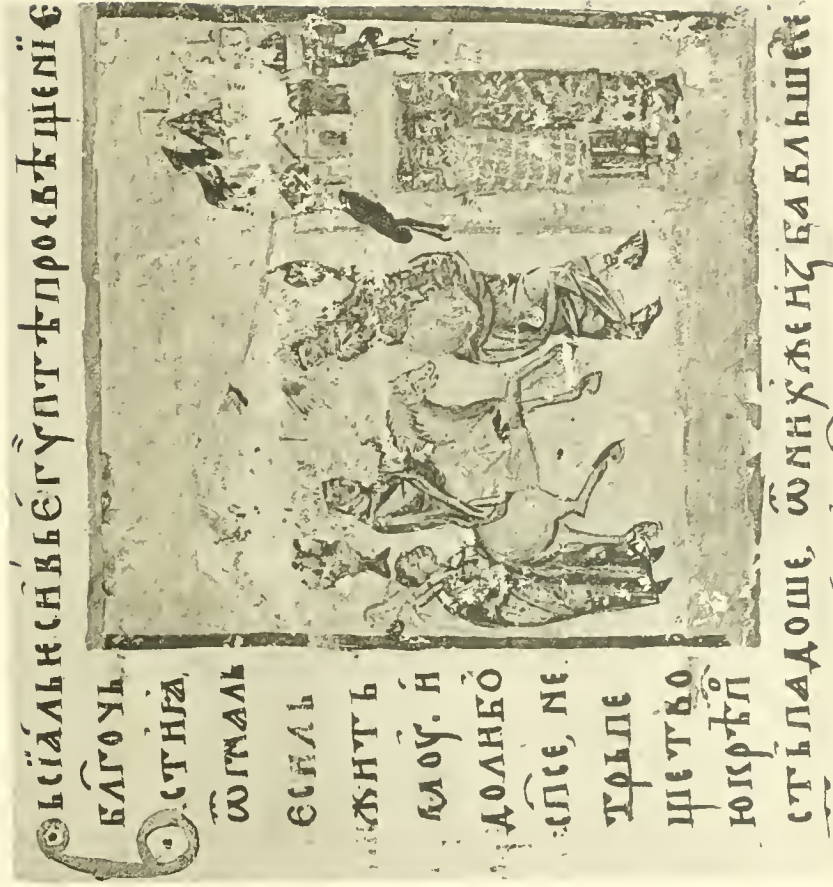 ВЬСЇАЛЬЕСИВЬЕГѴПТѢПРОСВѢЩЕНЇЄ
БЛ҃ГОЧЬ
СТИꙖ
ѾГНАЛЬ
ЄСИЛЬ
ЖИТЬ
МОУ. И
ДОЛИБО
СП҃СЕ, НЕ
ТРЬПЕ
ЩЕТВО
ЮКРѢПО
СТЬПАДОШЕ, ѾНИХЖЕИЗБАВЛЬШЕИ